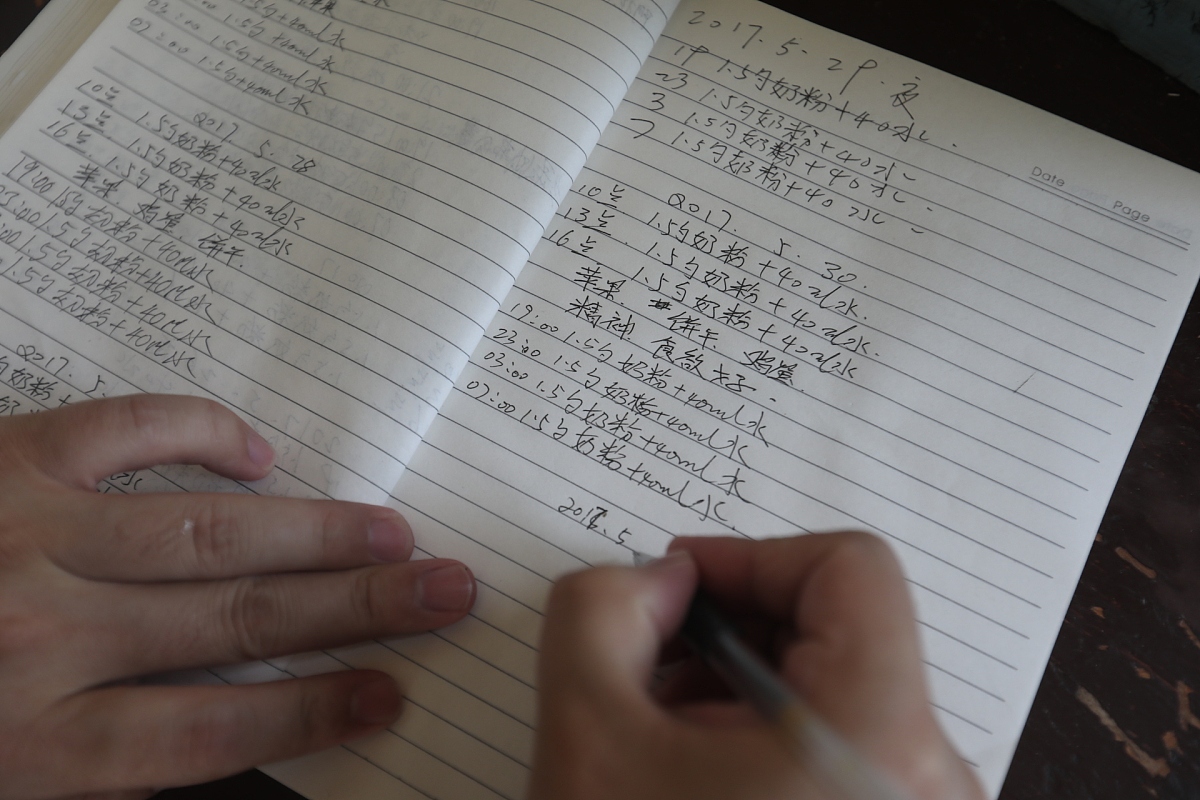 03:00 1.5勺+40ml水
07:00 1.5勺+40ml水
1.5勺+40ml水
2017. 5. 28
10点 1.5勺奶粉+40ml水
13点 1.5勺奶粉+40ml水
16点 1.5勺奶粉+40ml水
苹果 鸡蛋 饼干.
19:00 奶粉+40ml水
1.5勺奶粉+40ml水
1.5勺奶粉+40ml水
1.5勺奶粉+40ml水
2017. 5.
2017. 5. 29. 夜
19 1.5勺奶粉+40水.
23 1.5勺奶粉+40水.
3 1.5勺奶粉+40水.
7 1.5勺奶粉+40水.
2017. 5. 30.
10点 1.5勺奶粉+40ml水.
13点. 1.5勺奶粉+40ml水.
16点. 1.5勺奶粉+40ml水
苹果. 饼干 鸡蛋.
精神 食欲好.
19:00 1.5勺奶粉+40ml水
23:00 1.5勺奶粉+40ml水
03:00 1.5勺奶粉+40ml水
07:00 1.5勺奶粉+40ml水.
2017. 5
Date
Page